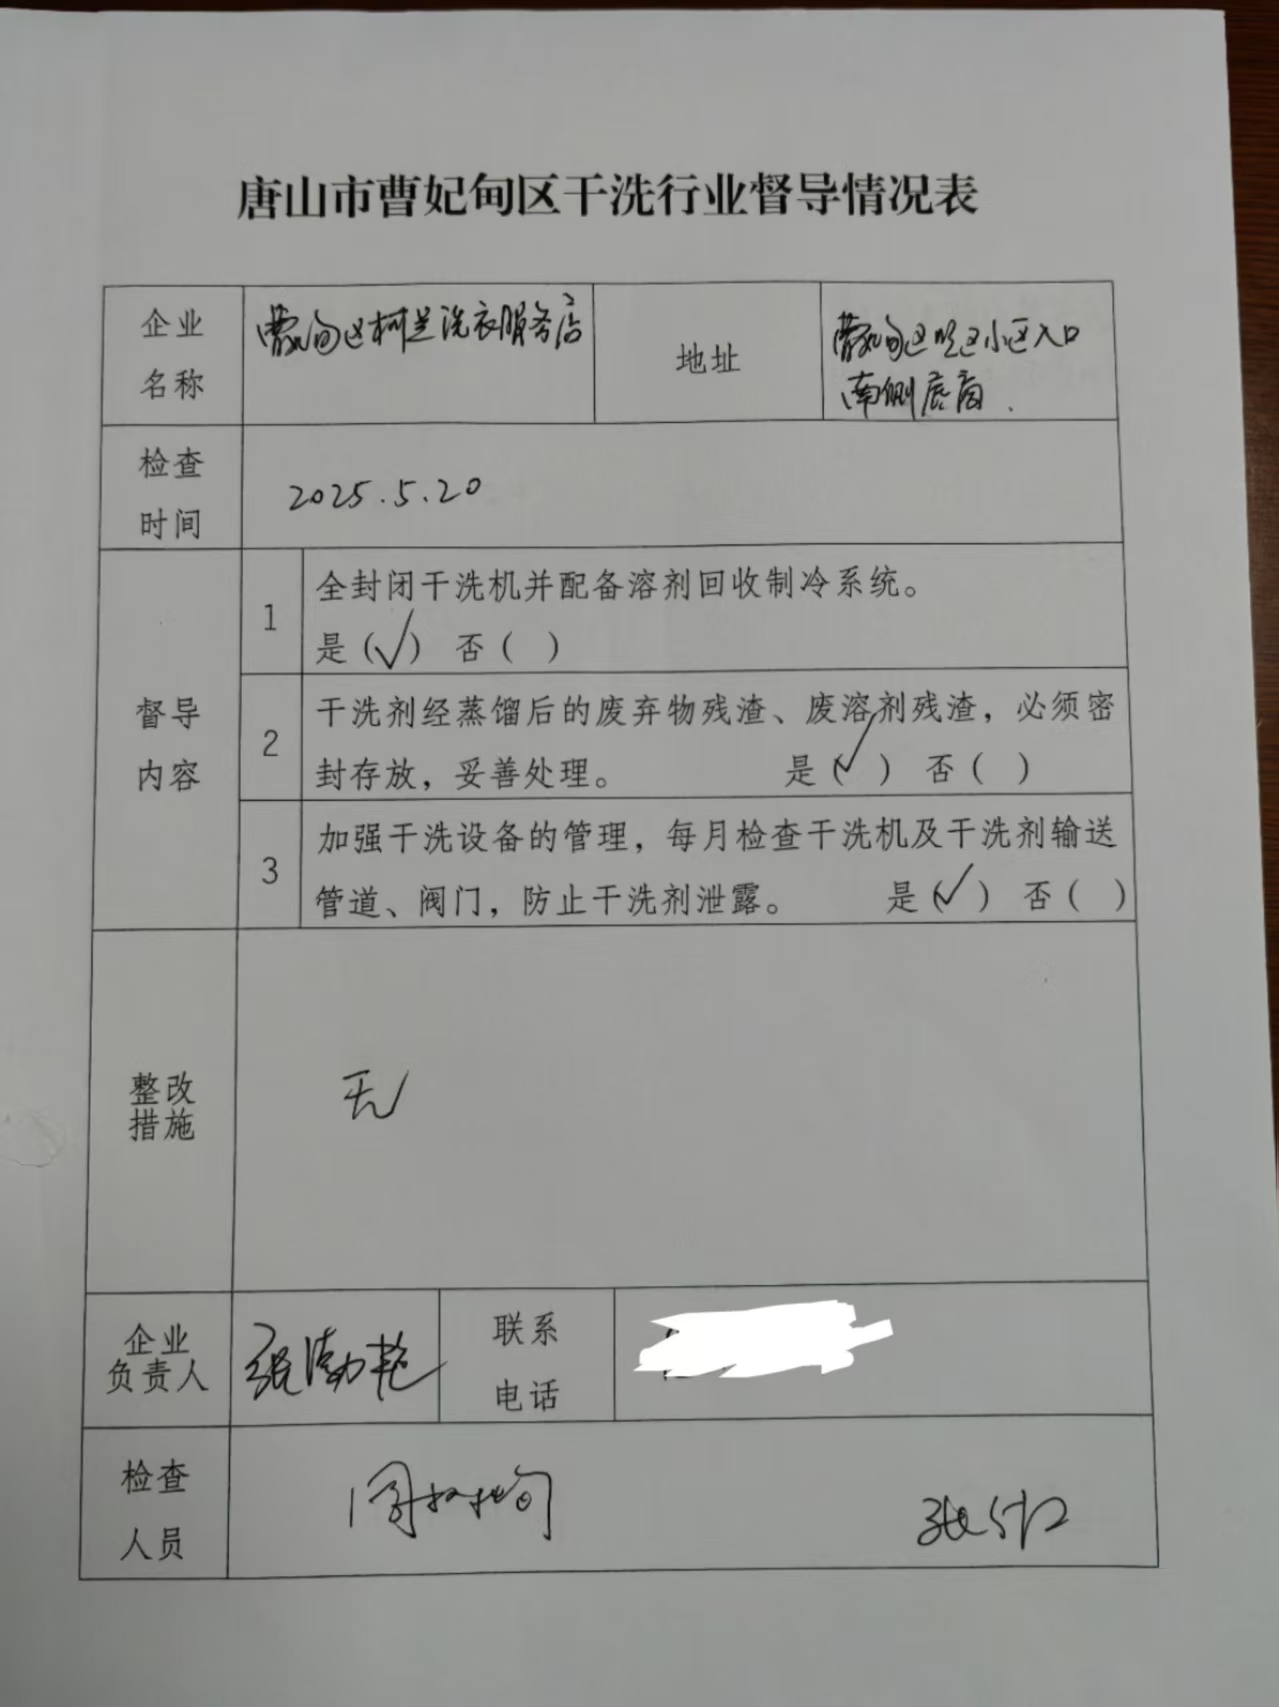 唐山市曹妃甸区干洗行业督导情况表
企业名称
曹妃甸区柯兰洗衣服务店
地址
曹妃甸区 小区入口
南侧底商.
检查时间
2025.5.20
督导内容
1
全封闭干洗机并配备溶剂回收制冷系统。
是(√) 否( )
2
干洗剂经蒸馏后的废弃物残渣、废溶剂残渣，必须密
封存放，妥善处理。 是(√) 否( )
3
加强干洗设备的管理，每月检查干洗机及干洗剂输送
管道、阀门，防止干洗剂泄露。 是(√) 否( )
整改措施
无
企业负责人
张渤艳
联系电话
检查人员